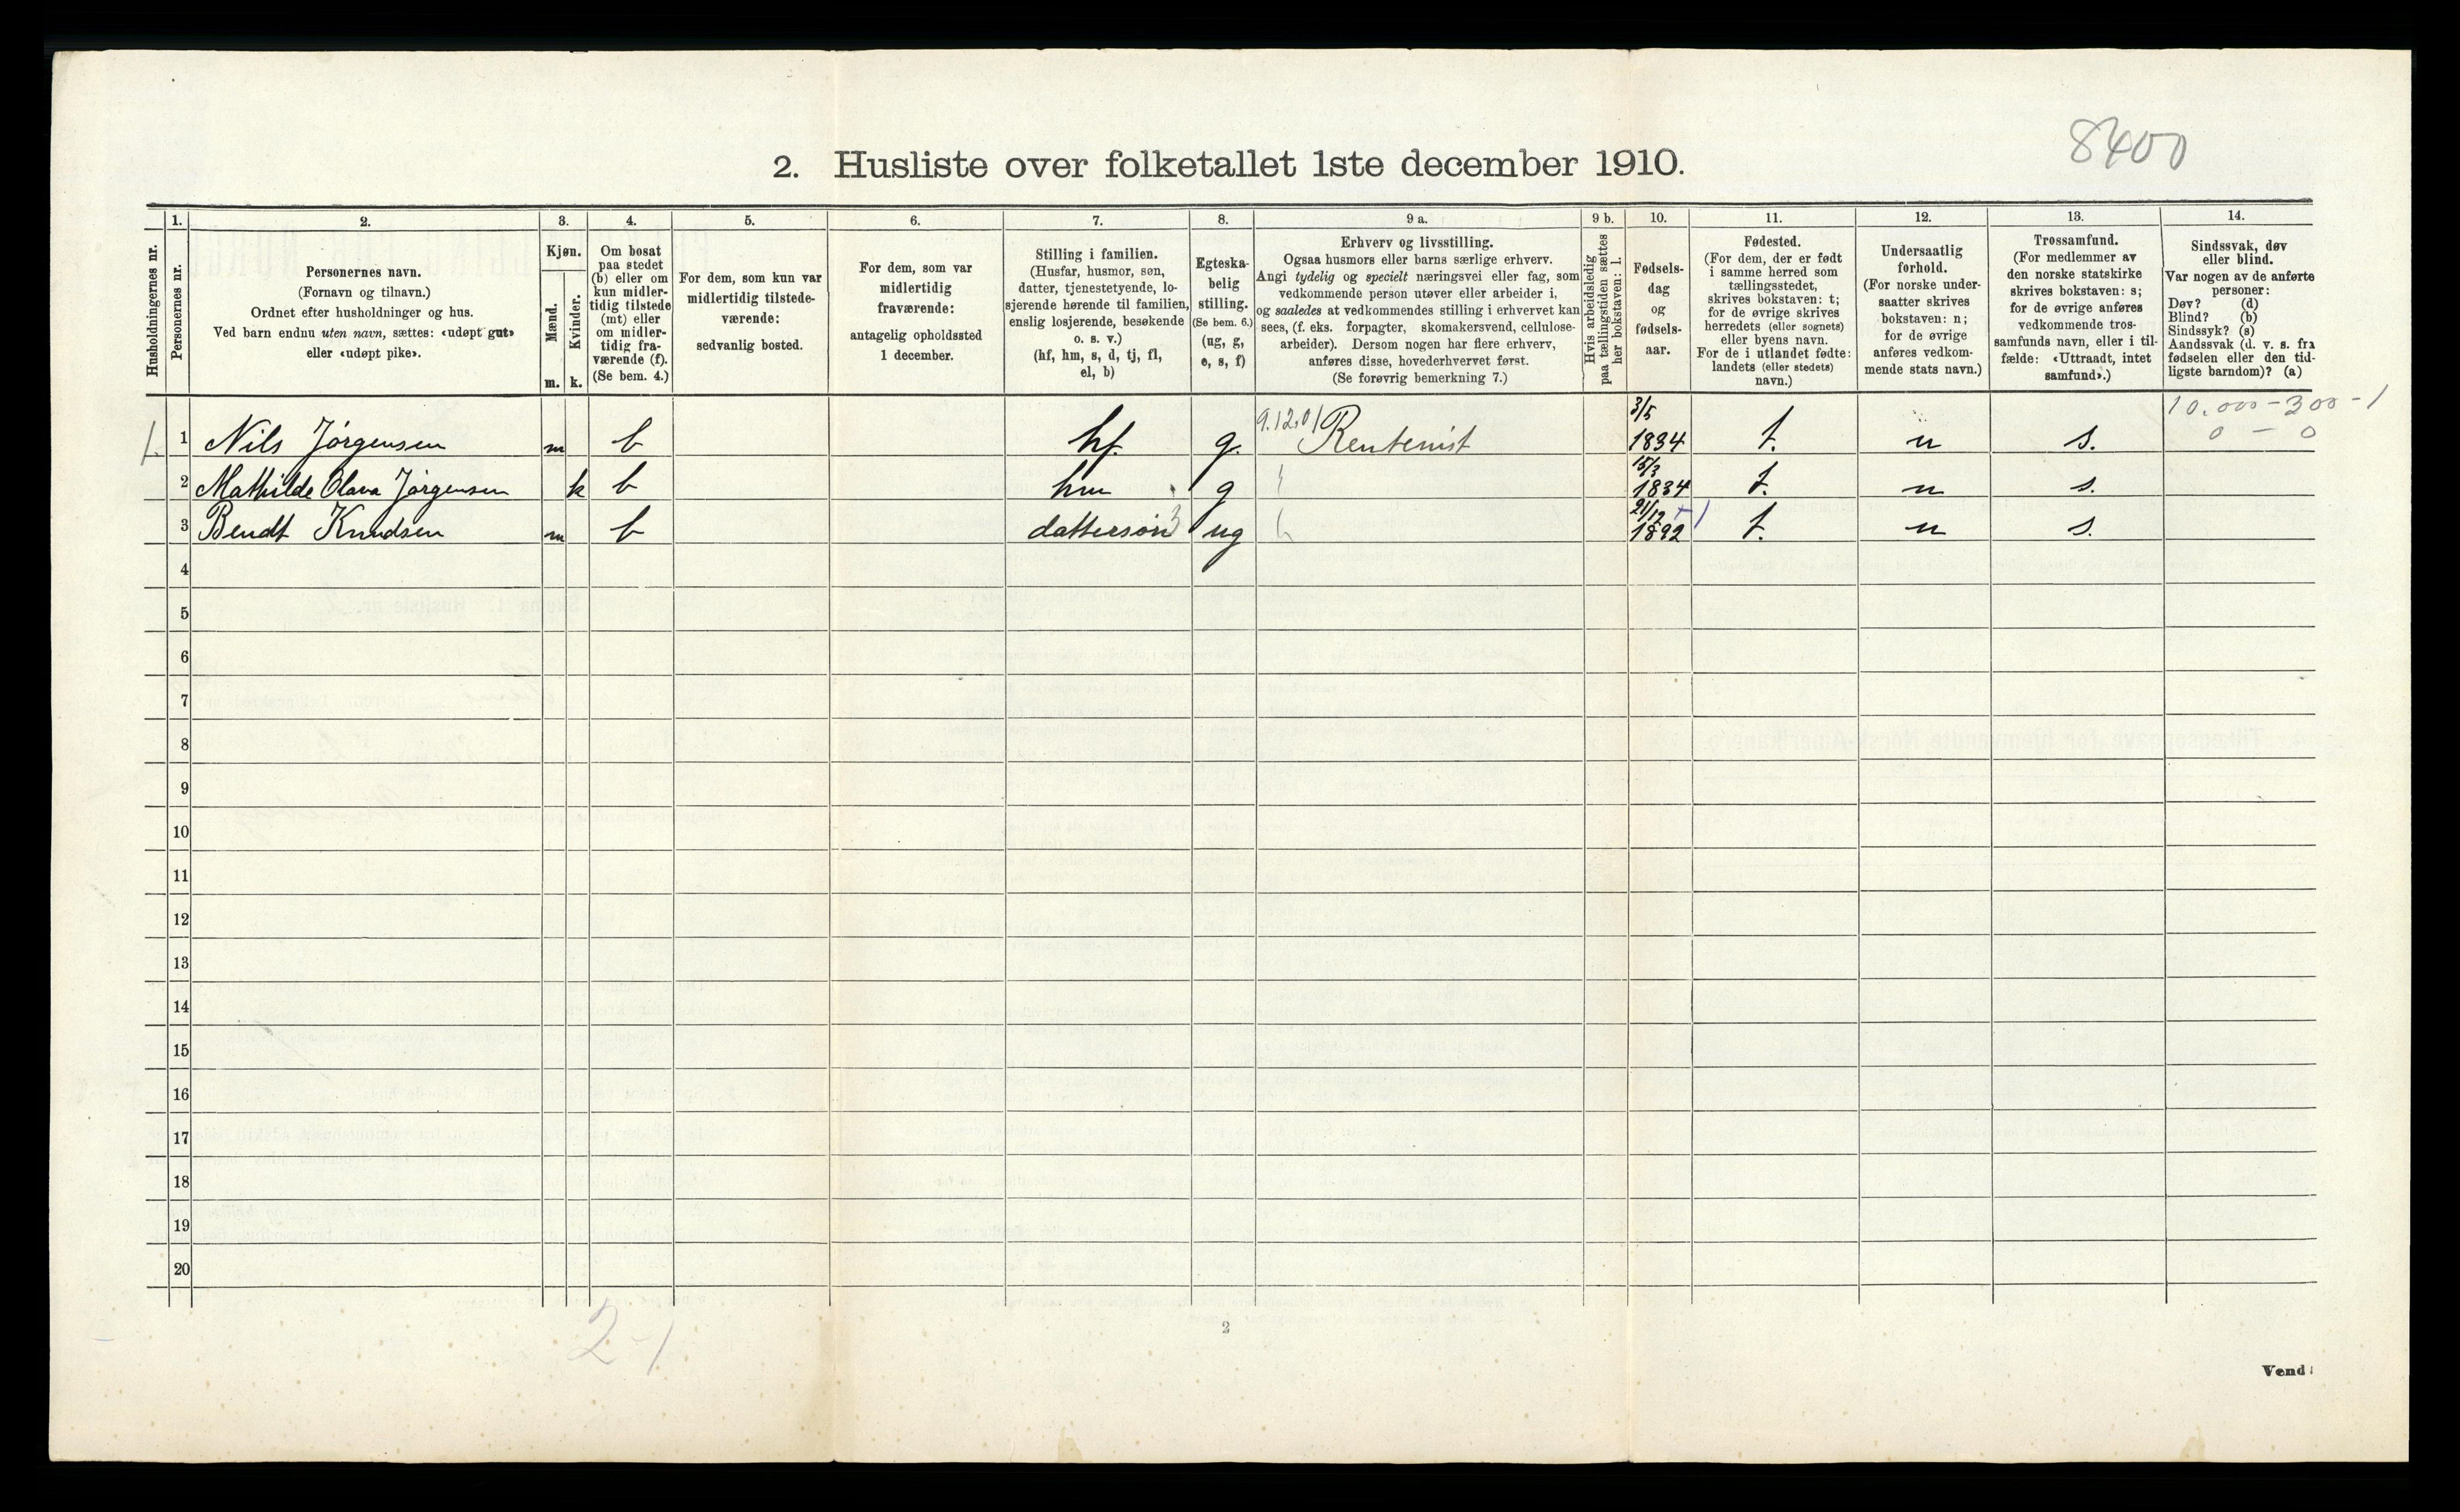 8400
2. Husliste over folketallet 1ste december 1910.
Husholdningernes nr.
1.
Personernes nr.
2.
Personernes navn.
(Fornavn og tilnavn.)
Ordnet efter husholdninger og hus.
Ved barn endnu uten navn, sættes: «udøpt gut»
eller «udøpt pike».
3.
Kjøn.
Mænd.
Kvinder.
m. k.
4.
Om bosat
paa stedet
(b) eller om
kun midler-
tidig tilstede
(mt) eller
om midler-
tidig fra-
værende (f).
(Se bem. 4.)
5.
For dem, som kun var
midlertidig tilstede-
værende:
sedvanlig bosted.
6.
For dem, som var
midlertidig
fraværende:
antagelig opholdssted
1 december.
7.
Stilling i familien.
(Husfar, husmor, søn,
datter, tjenestetyende, lo-
sjerende hørende til familien,
enslig losjerende, besøkende
o. s. v.)
(hf, hm, s, d, tj, fl,
el, b)
8.
Egteska-
belig
stilling.
(Se bem. 6.)
(ug, g,
e, s, f)
9 a.
Erhverv og livsstilling.
Ogsaa husmors eller barns særlige erhverv.
Angi tydelig og specielt næringsvei eller fag, som
vedkommende person utøver eller arbeider i,
og saaledes at vedkommendes stilling i erhvervet kan
sees, (f. eks. forpagter, skomakersvend, cellulose-
arbeider). Dersom nogen har flere erhverv,
anføres disse, hovederhvervet først.
(Se forøvrig bemerkning 7.)
9 b.
Hvis arbeidsledig
paa tællingstiden sættes
her bokstaven: l.
10.
Fødsels-
dag
og
fødsels-
aar.
11.
Fødested.
(For dem, der er født
i samme herred som
tællingsstedet,
skrives bokstaven: t;
for de øvrige skrives
herredets (eller sognets)
eller byens navn.
For de i utlandet fødte:
landets (eller stedets)
navn.)
12.
Undersaatlig
forhold.
(For norske under-
saatter skrives
bokstaven: n;
for de øvrige
anføres vedkom-
mende stats navn.)
13.
Trossamfund.
(For medlemmer av
den norske statskirke
skrives bokstaven: s;
for de øvrige anføres
vedkommende tros-
samfunds navn, eller i til-
fælde: «Uttraadt, intet
samfund».)
14.
Sindssvak, døv
eller blind.
Var nogen av de anførte
personer:
Døv? (d)
Blind? (b)
Sindssyk? (s)
Aandssvak (d. v. s. fra
fødselen eller den tid-
ligste barndom)? (a)
10.000 - 300 - 1
0 - 0
1. 1 Nils Jørgensen m b hf. g. 9.12.01 Rentenist 3/5 1834 t. n s.
2 Mathilde Olava Jørgensen k b hm g 15/3 1834 t. n s.
3 Bendt Knudsen m b dattersøn 3 ug 21/12 1892 t. n s.
4
5
6
7
8
9
10
11
12
13
14
15
16
17
18
19
20
2-1
2
Vend!